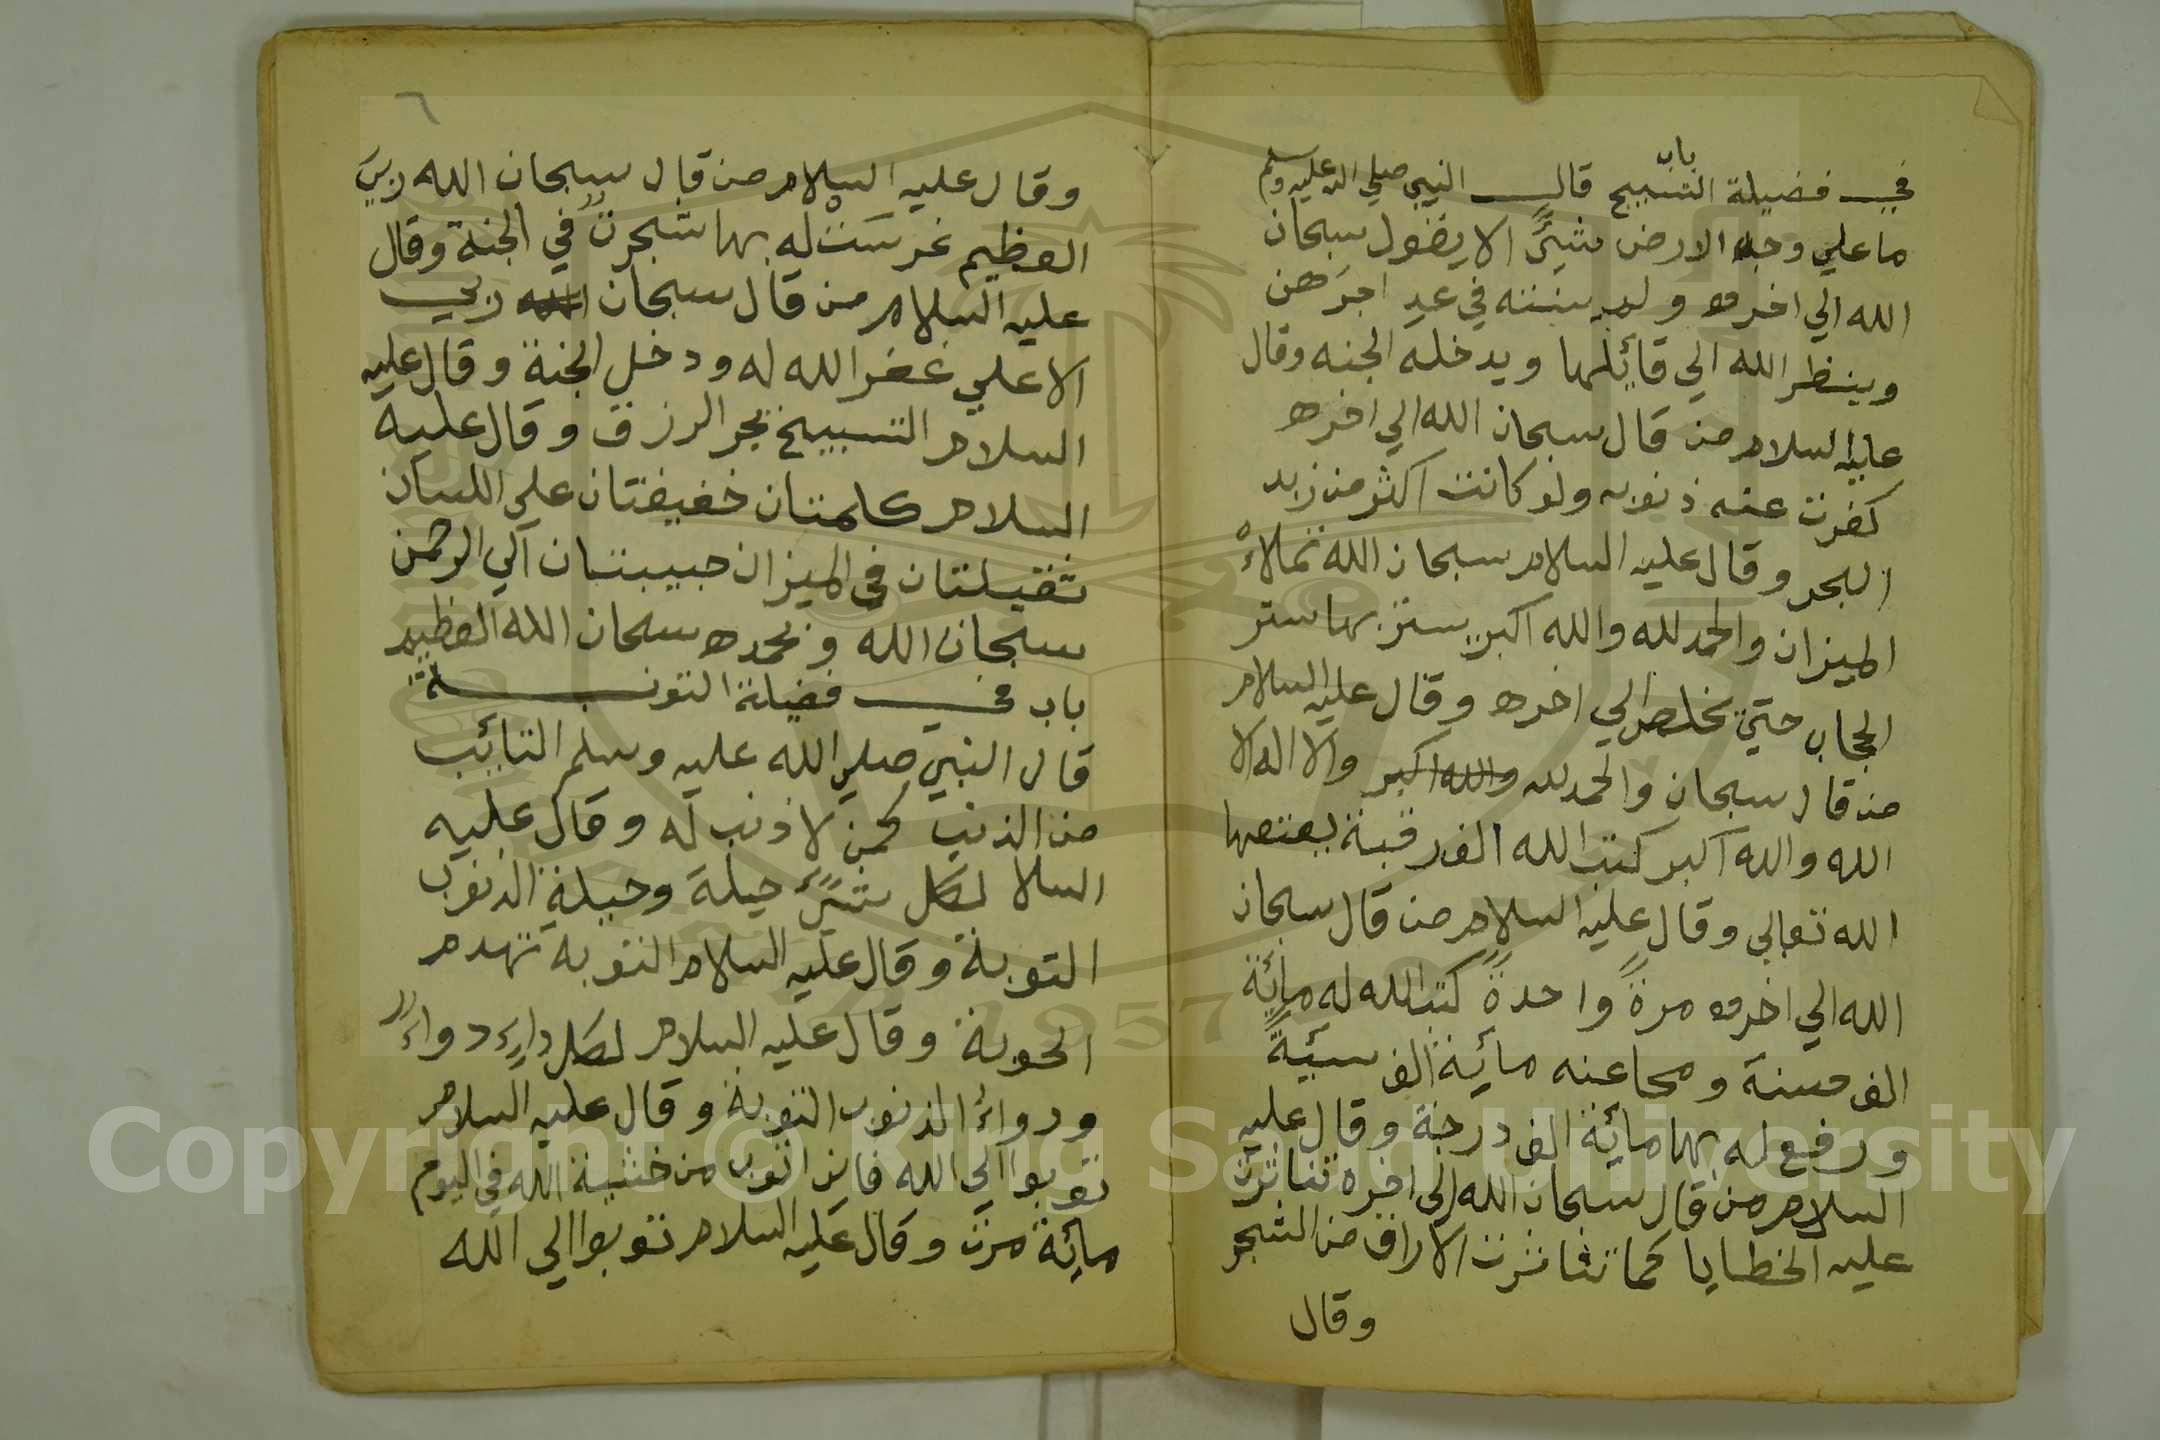 باب
في فضيلة التسبيح قال النبي صلي الله عليه وسلم
ما علي وجه الارض شيئٌ الا يقول سبحان
الله الي اخره و لم اجرهن
وينظر الله الي قائلها ويدخله الجنه وقال
عليه السلام من قال سبحان الله الي اخره
كفرت عنه ذنوبه ولو كانت اكثر من زبد
البحر وقال عليه السلام سبحان الله تملاءْ
الميزان والحمد لله والله اكبر يستر بها ستر
الحجاب حتي تخلص الي اخره وقال عليه السلام
من قال سبحان والحمد لله والله اكبر والا اله الا
الله والله اكبر كتب الله الف رقبة يعتقها
الله تعالي وقال عليه السلام من قال سبحان
الله الي اخره مرةً واحدةً كتب الله له مائة
الف حسنة ومحا عنه مائة الف سيئةً
ورفع له بها مائة الف درجة وقال عليه
السلام من قال سبحان الله الي اخره تناثرت
عليه الخطايا كما تناثرت الاراق من الشجر
وقال
٦
وقال عليه السلام من قال سبحان الله ربي
العظيم غرست له بها شجرت في الجنة وقال
عليه السلام من قال سبحان الله ربي
الاعلي غفر الله له ودخل الجنة وقال عليه
السلام التسبيح يجر الرزق وقال عليه
السلام كلمتان خفيفتان علي اللسان
ثقيلتان في الميزان حبيبتان الي الرحمن
سبحان الله وبحمده سبحان الله العظيم
باب في فضيلة التوبة
قال النبي صلي الله عليه وسلم التائب
من الذنب كمن لا ذنب له وقال عليه
السلا لكل شيئٍ حيلة وحيلة الذنوب
التوبة وقال عليه السلام التوبة تهدم
الحوبة وقال عليه السلام لكل داءٍ دواءٌ
ودواءُ الذنوب التوبة وقال عليه السلام
توبوا الي الله فاني اتوب من خشية الله في اليوم
مائة مرت وقال عليه السلام توبوا الي الله
Copyright © King Saud University
1957